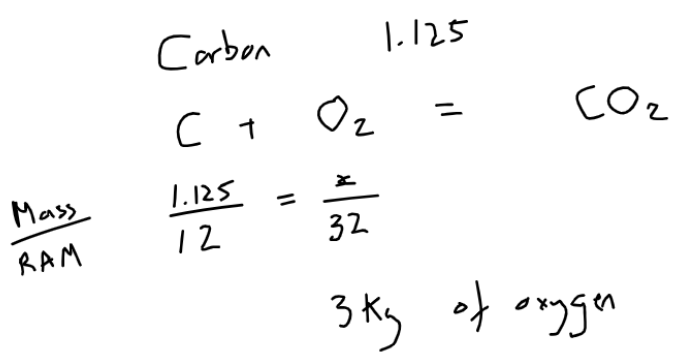 Carbon 1.125
C + O₂ = CO₂
Mass/RAM 1.125/12 = x/32
3 Kg of oxygen